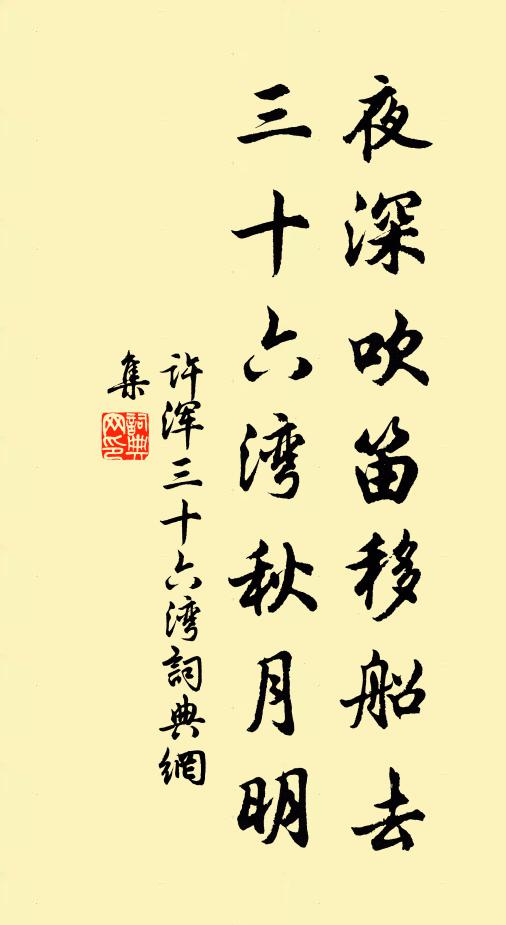 夜深吹笛移船去
三十六湾秋月明
许浑三十六湾詞典網
集
詞典网印